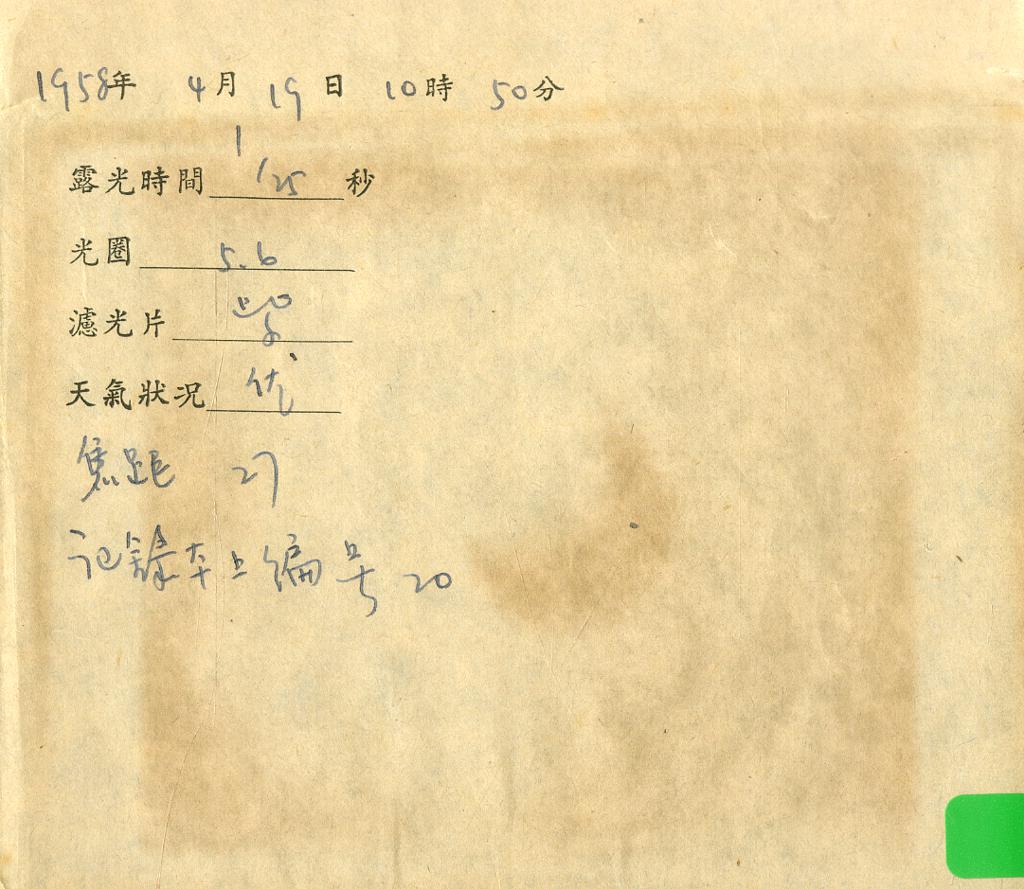 1958年 4月 19日 10時 50分
露光時間 1/25 秒
光圈 5.6
濾光片
天氣狀况 优
焦距 27
记録本上编号 20